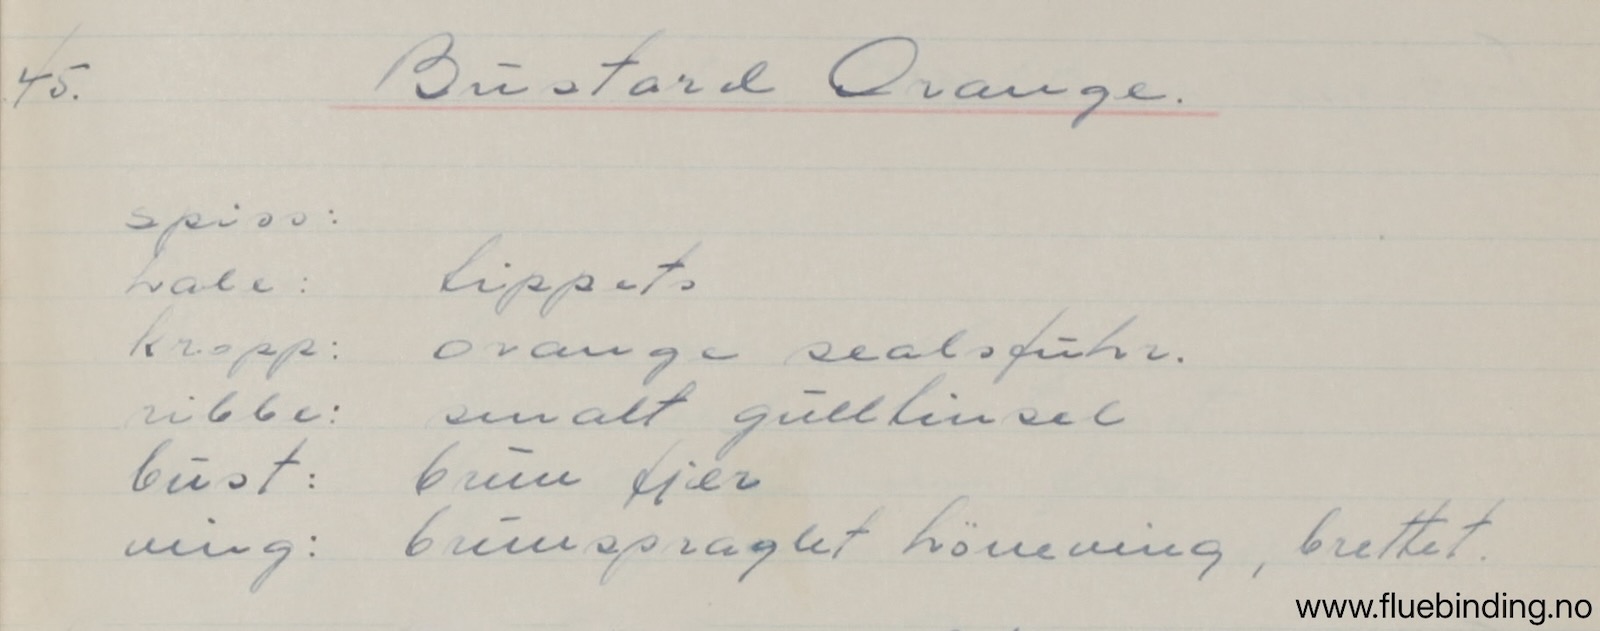 45. Bustard Orange.
spiss:
hale: tippets
kropp: orange sealsfuhr.
ribbe: smalt gulltinsel
bust: brun fjer
ving: brunspraglet höneving, brettet.
www.fluebinding.no